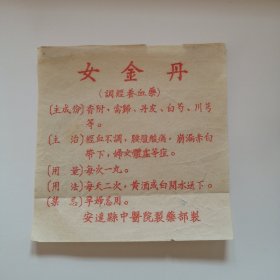 女金丹
（調經養血藥）
〔主成份〕香附，當歸、丹皮、白芍、川芎
等。
〔主　治〕經血不調，腰腹酸痛，崩漏赤白
帶下，婦女體虛等症。
〔用　量〕每次一丸。
〔用　法〕每天二次，黃酒或白開水送下。
〔禁　忌〕孕婦忌用。
安達縣中醫院製藥部製